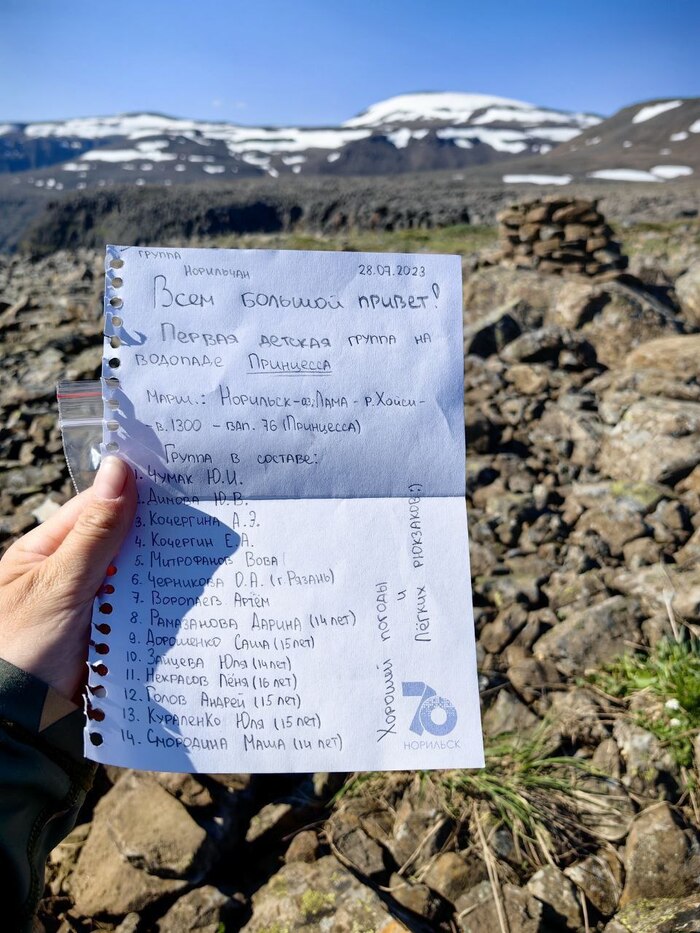 группа
Норильчан
28.07.2023
Всем большой привет!
Первая детская группа на
водопаде Принцесса
Марш.: Норильск-оз.Лама - р.Хойси-
-в.1300 - вдп. 76 (Принцесса)
Группа в составе:
1. Чумак Ю.И.
2. Димова Ю.В.
3. Кочергина А.Э.
4. Кочергин Е.А.
5. Митрофанов Вова
6. Черникова О.А. (г.Рязань)
7. Воропаев Артём
8. Рамазанова Дарина (14 лет)
9. Дорошенко Саша (15 лет)
10. Зайцева Юля (14 лет)
11. Некрасов Лёня (16 лет)
12. Голов Андрей (15 лет)
13. Кураленко Юля (15 лет)
14. Смородина Маша (14 лет)
Хорошей погоды
и
лёгких рюкзаков:)
70
НОРИЛЬСК